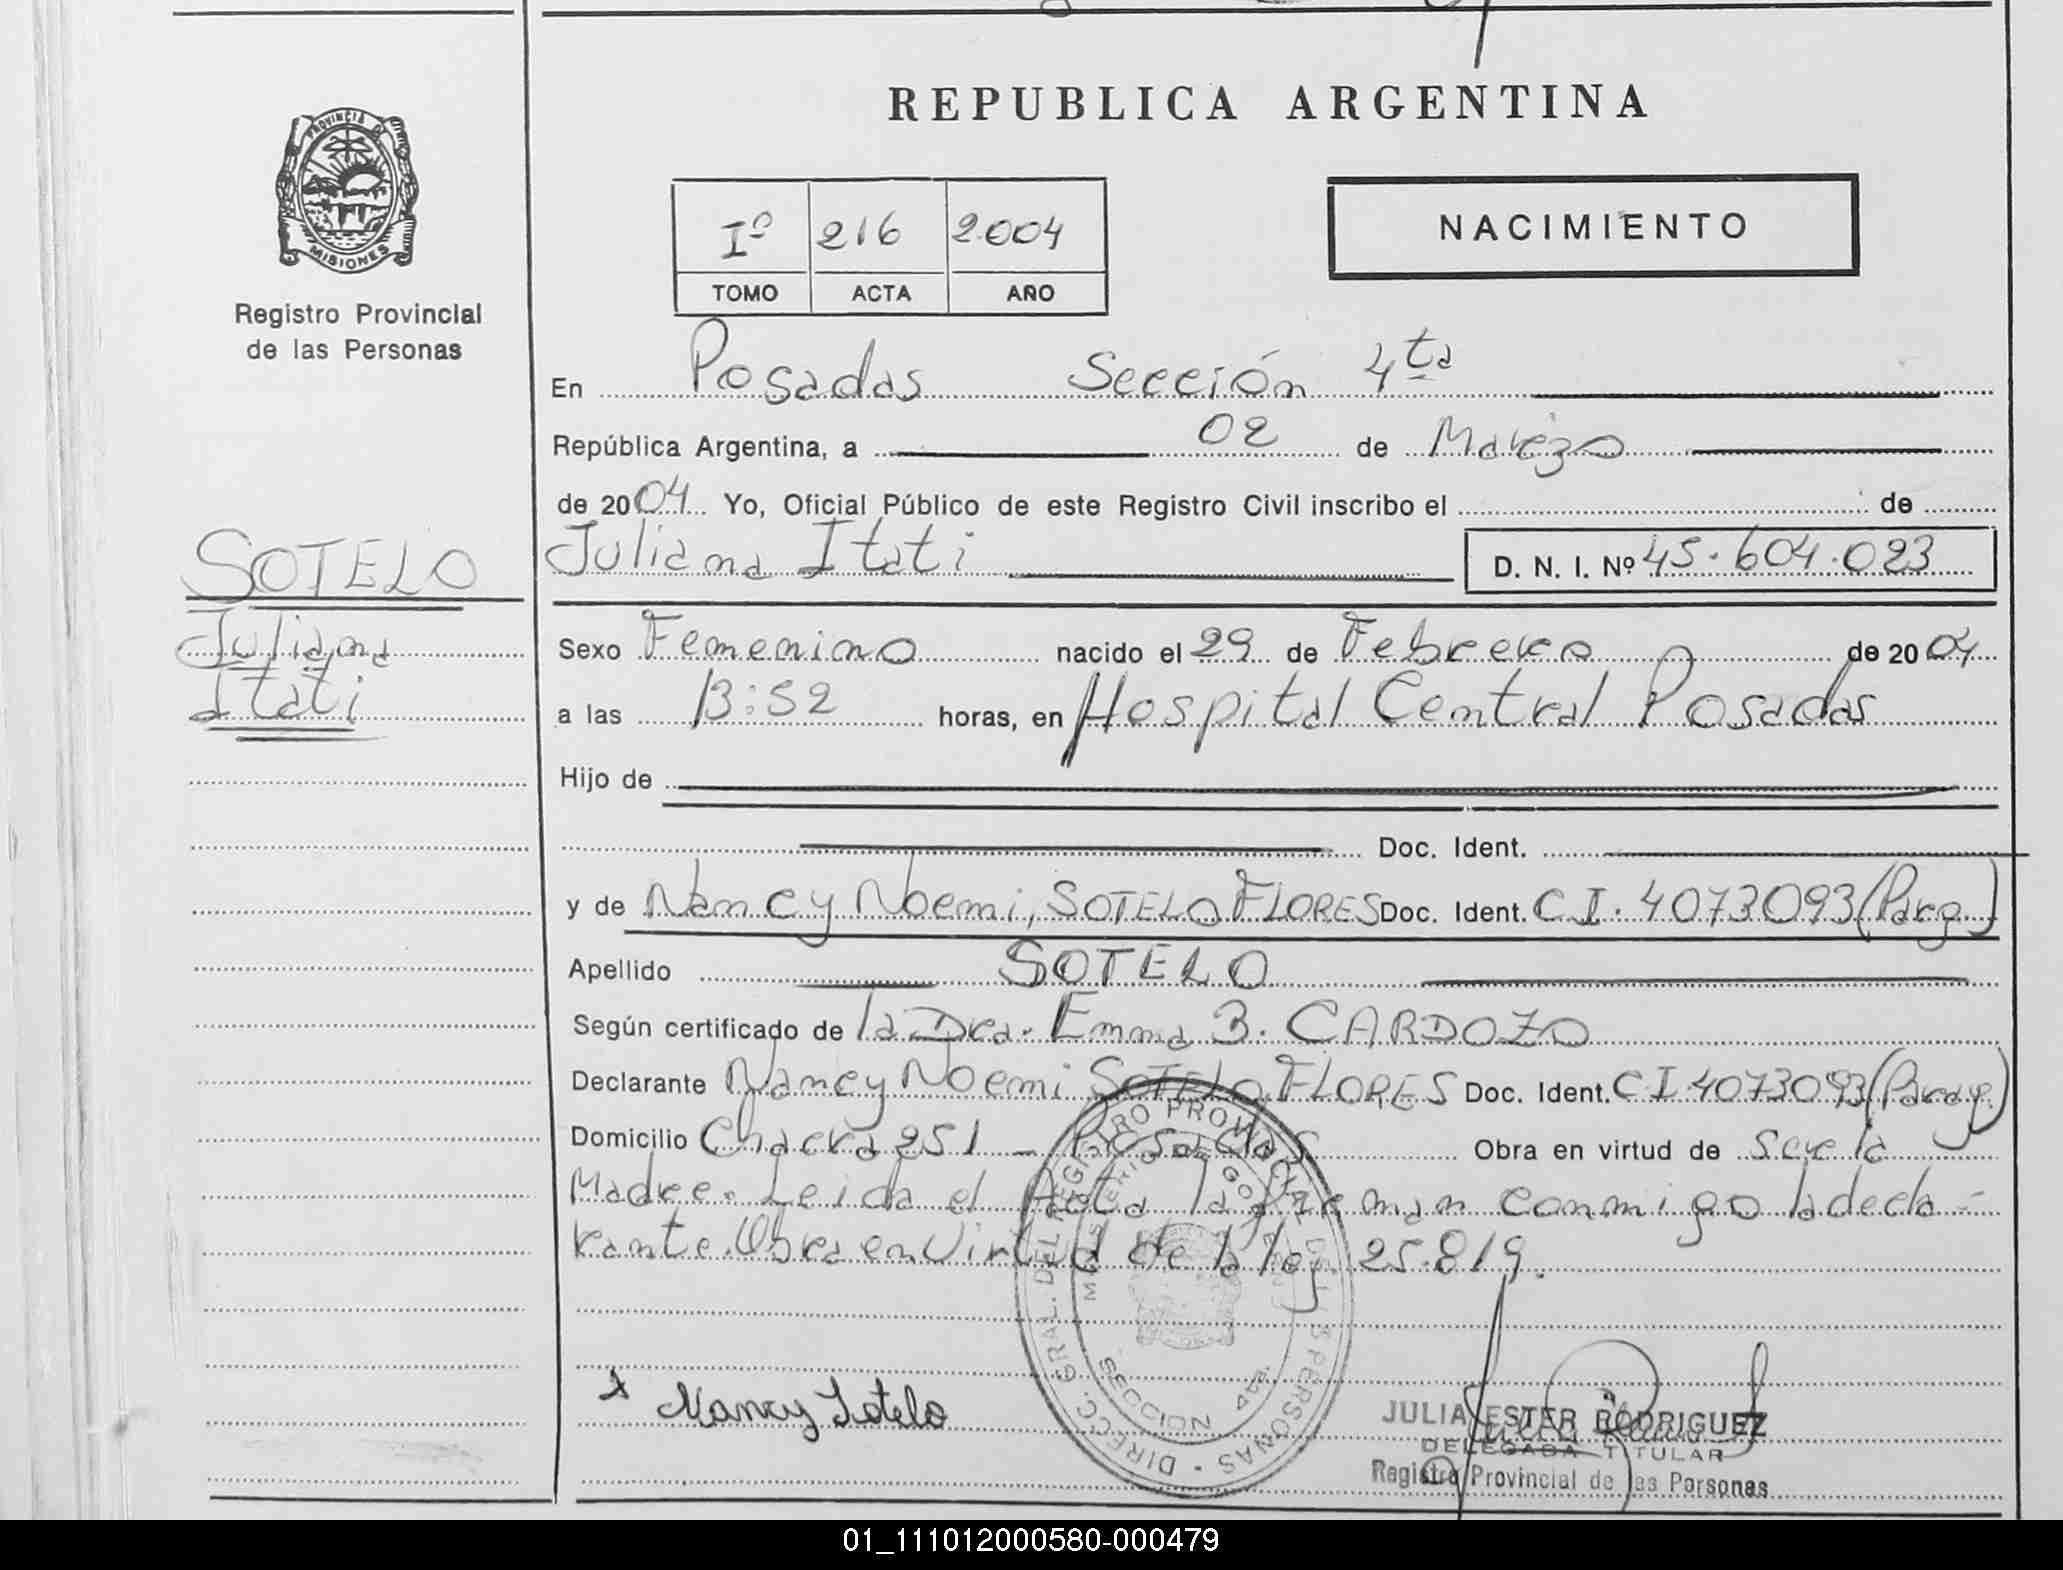 REPUBLICA ARGENTINA
PROVINCIA DE
MISIONES
Registro Provincial
de las Personas
Iº 216 2.004
TOMO ACTA AÑO
NACIMIENTO
En Posadas Sección 4ta
República Argentina, a 02 de Marzo
de 2004 Yo, Oficial Público de este Registro Civil inscribo el de
Juliana Itati D. N. I. Nº 45.604.023
SOTELO
Juliana
Itati
Sexo Femenino nacido el 29 de Febrero de 2004
a las 13:52 horas, en Hospital Central Posadas
Hijo de
Doc. Ident.
y de Nancy Noemi, SOTELO FLORES Doc. Ident. C I. 4073093 (Parg.)
Apellido SOTELO
Según certificado de la Dra. Emma B. CARDOZO
Declarante Nancy Noemi SOTELO FLORES Doc. Ident. C I 4073093 (Parag.)
Domicilio Chacra 251 - Posadas Obra en virtud de Ser la
Madre. Leida el Acta la firman conmigo la decla-
rante. Obra en Virtud de la ley 25.819.
DIRECC. GRAL. DEL REGISTRO PROVINCIAL DE LAS PERSONAS
MINISTERIO DE GOBIERNO
SECCION 4ta.
x Nancy Sotelo
JULIA ESTER RODRIGUEZ
DELEGADA TITULAR
Registro Provincial de las Personas
01_111012000580-000479